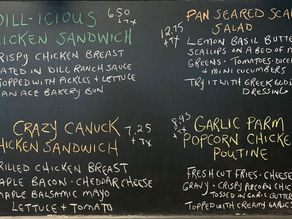 DILL-ICIOUS 6.50
+TX
HICKEN SANDWICH
RISPY CHICKEN BREAST
ATED IN DILL RANCH SAUCE
TOPPED WITH PICKLES + LETTUCE
AN ACE BAKERY BUN
CRAZY CANUCK 7.25
+TX
HICKEN SANDWICH
RILLED CHICKEN BREAST
APLE BACON · CHEDDAR CHEESE
APLE BALSAMIC MAYO
LETTUCE + TOMATO
PAN SEARED SCAL
12.75
+TX
SALAD
LEMON BASIL BUTT
SCALLOPS ON A BED OF M
GREENS · TOMATOES · DICE
+ MINI CUCUMBERS
TRY IT WITH GREEK
DRESSING
8.95
+TX
GARLIC PARM
POPCORN CHICKE
POUTINE
FRESH CUT FRIES · CHEESE
GRAVY · CRISPY POPCORN CHIC
TOSSED IN GARLIC BUTTER
TOPPED WITH CREAMY GARLIC